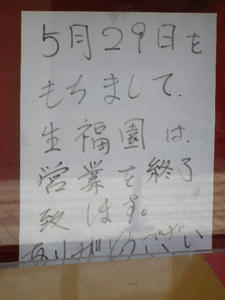 5月29日を
もちまして、
生福園は、
営業を終了
致します。
ありがとうござい